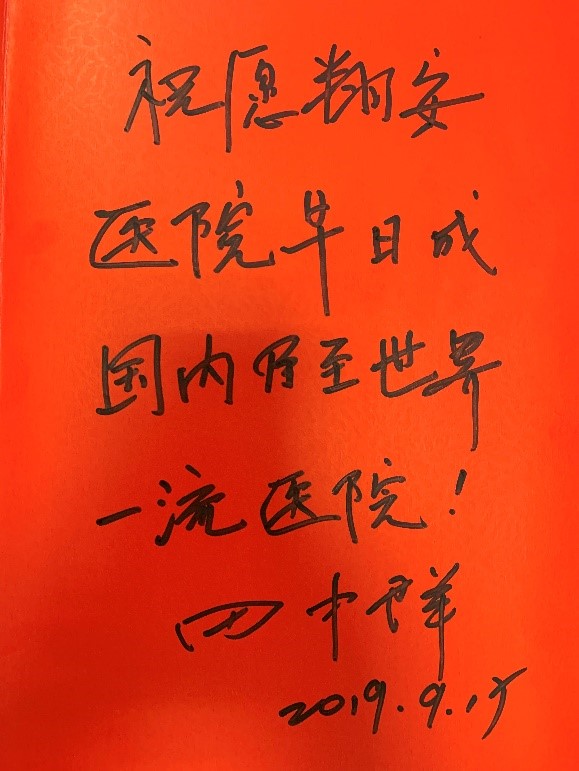 祝愿翔安
医院早日成
国内乃至世界
一流医院！
田中群
2019.9.15